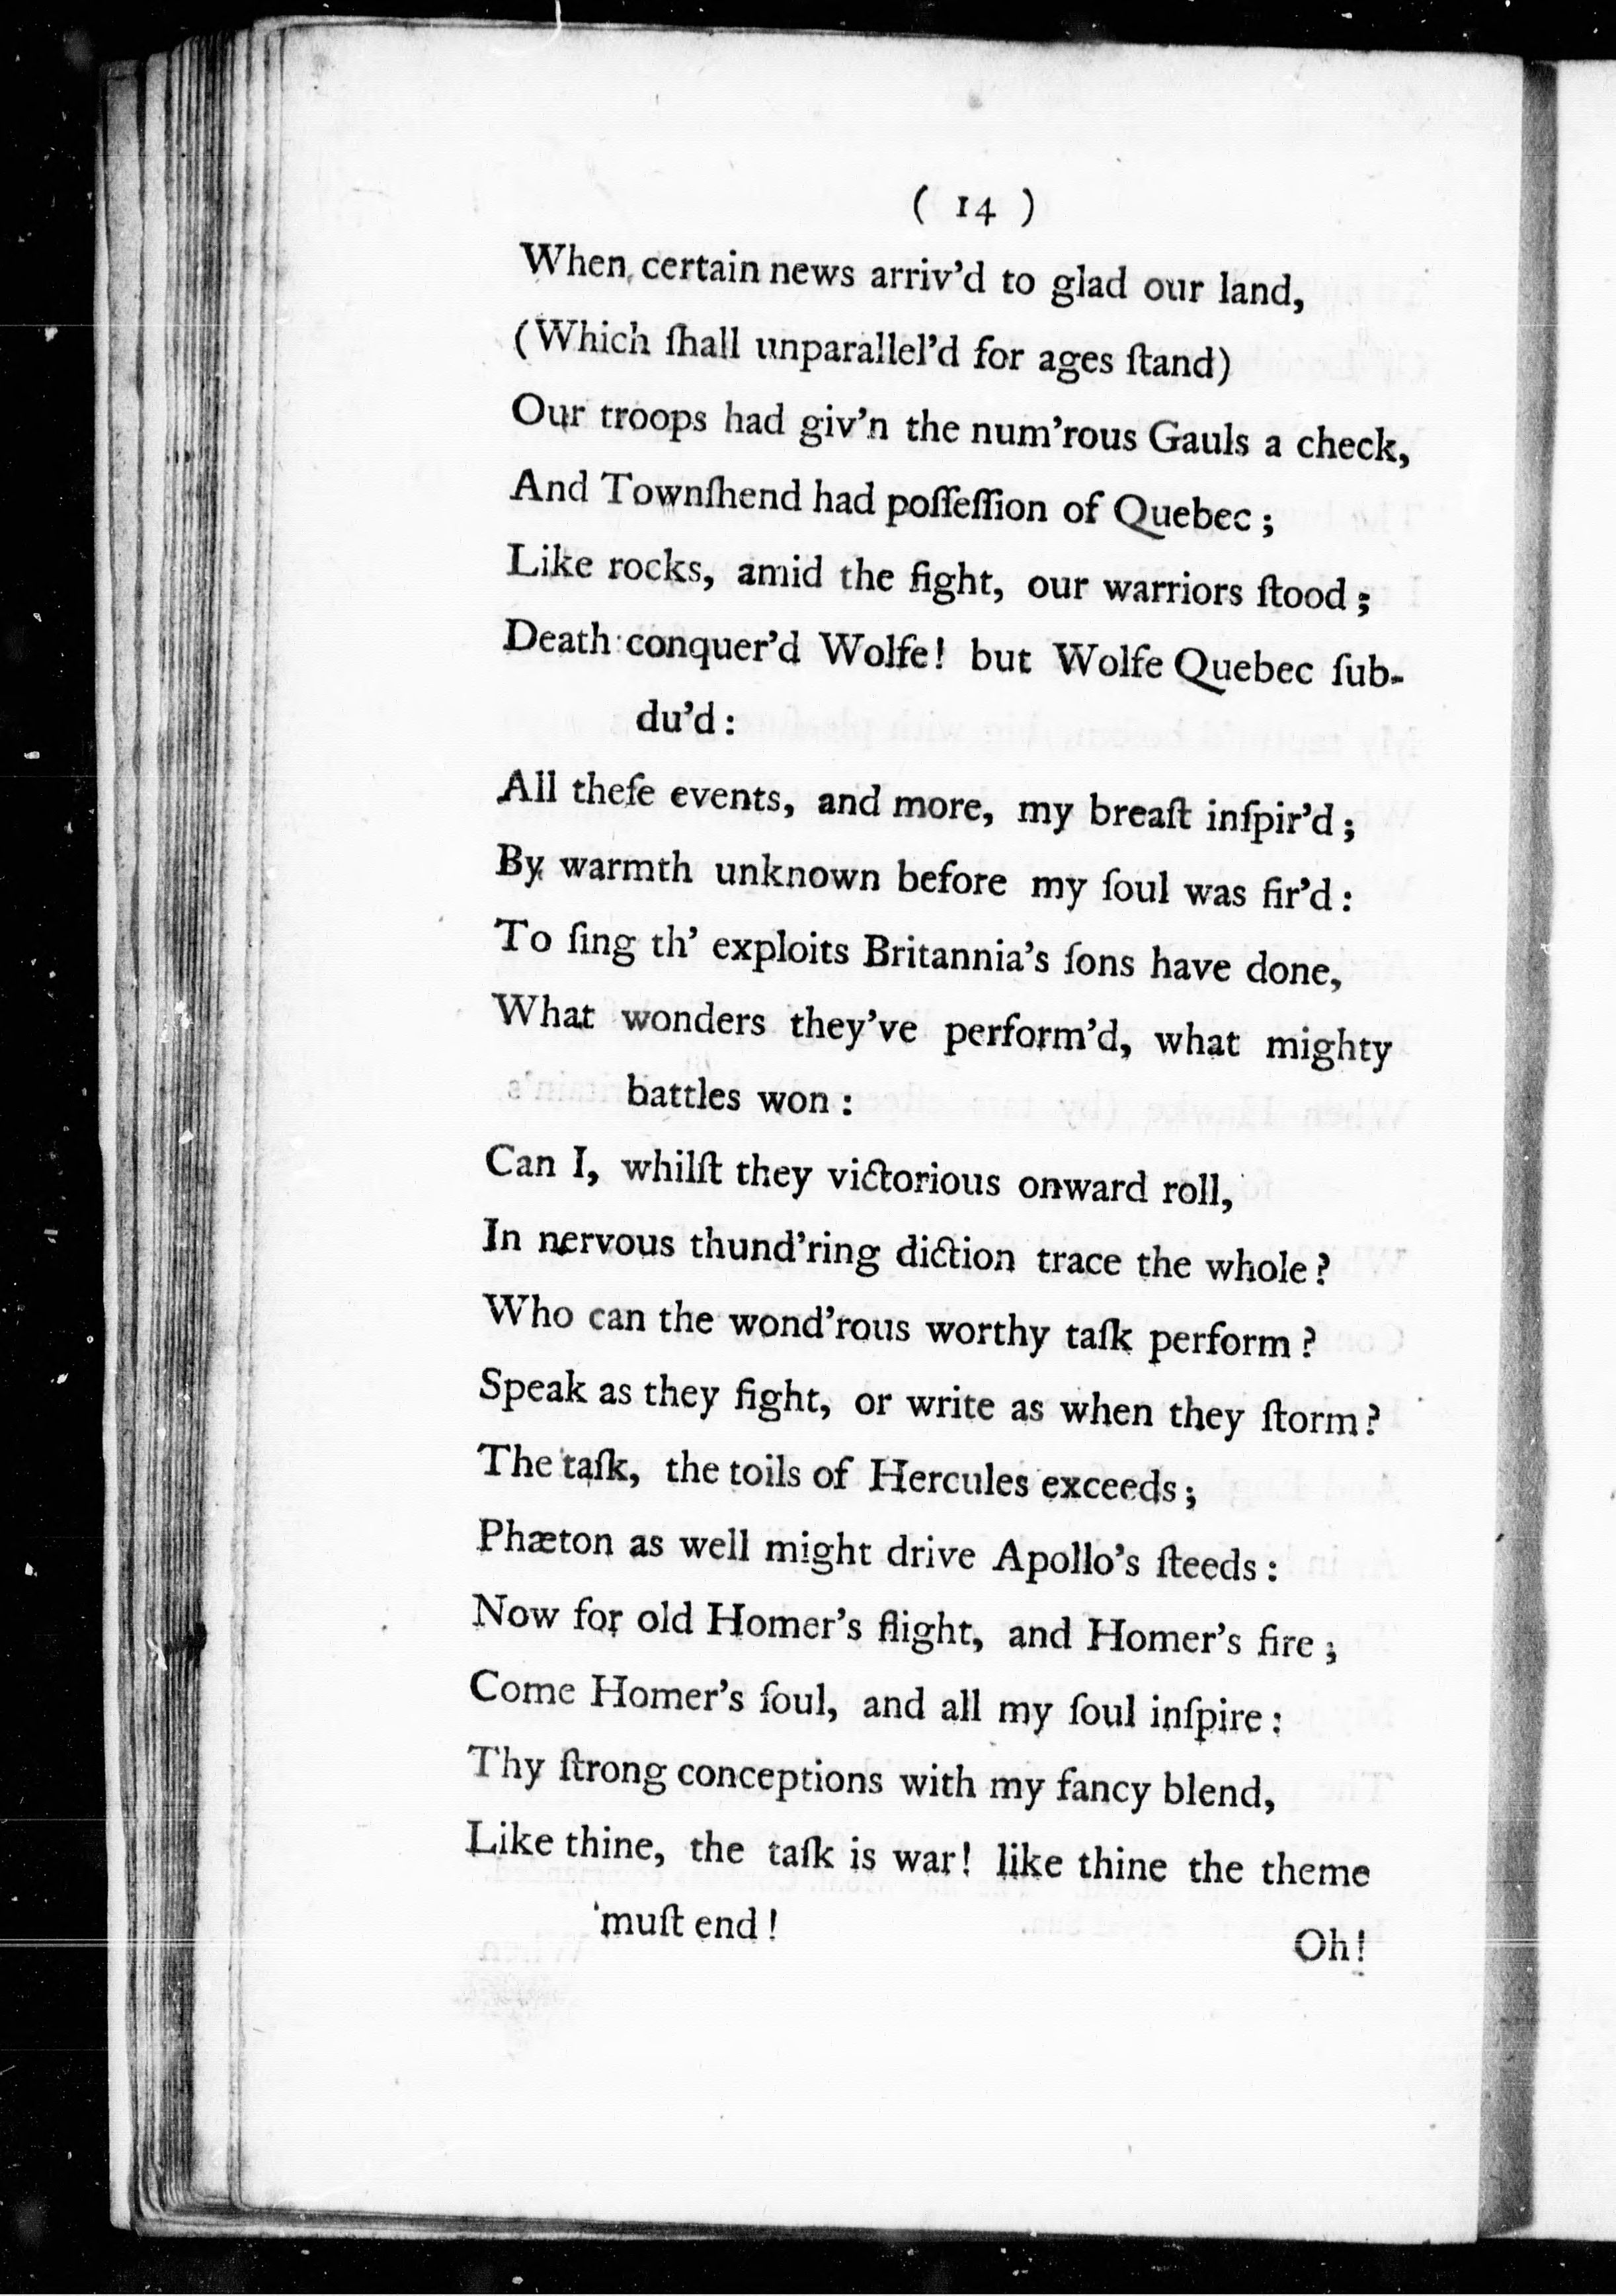 ( 14 )
When certain news arriv'd to glad our land,
(Which ſhall unparallel'd for ages ſtand)
Our troops had giv'n the num'rous Gauls a check,
And Townſhend had poſſeſſion of Quebec;
Like rocks, amid the fight, our warriors ſtood;
Death conquer'd Wolfe! but Wolfe Quebec ſub-
du'd:
All theſe events, and more, my breaſt inſpir'd;
By warmth unknown before my ſoul was fir'd:
To ſing th' exploits Britannia's ſons have done,
What wonders they've perform'd, what mighty
battles won:
Can I, whilſt they victorious onward roll,
In nervous thund'ring diction trace the whole?
Who can the wond'rous worthy taſk perform?
Speak as they fight, or write as when they ſtorm?
The taſk, the toils of Hercules exceeds;
Phæton as well might drive Apollo's ſteeds:
Now for old Homer's flight, and Homer's fire;
Come Homer's ſoul, and all my ſoul inſpire:
Thy ſtrong conceptions with my fancy blend,
Like thine, the taſk is war! like thine the theme
muſt end!
Oh!